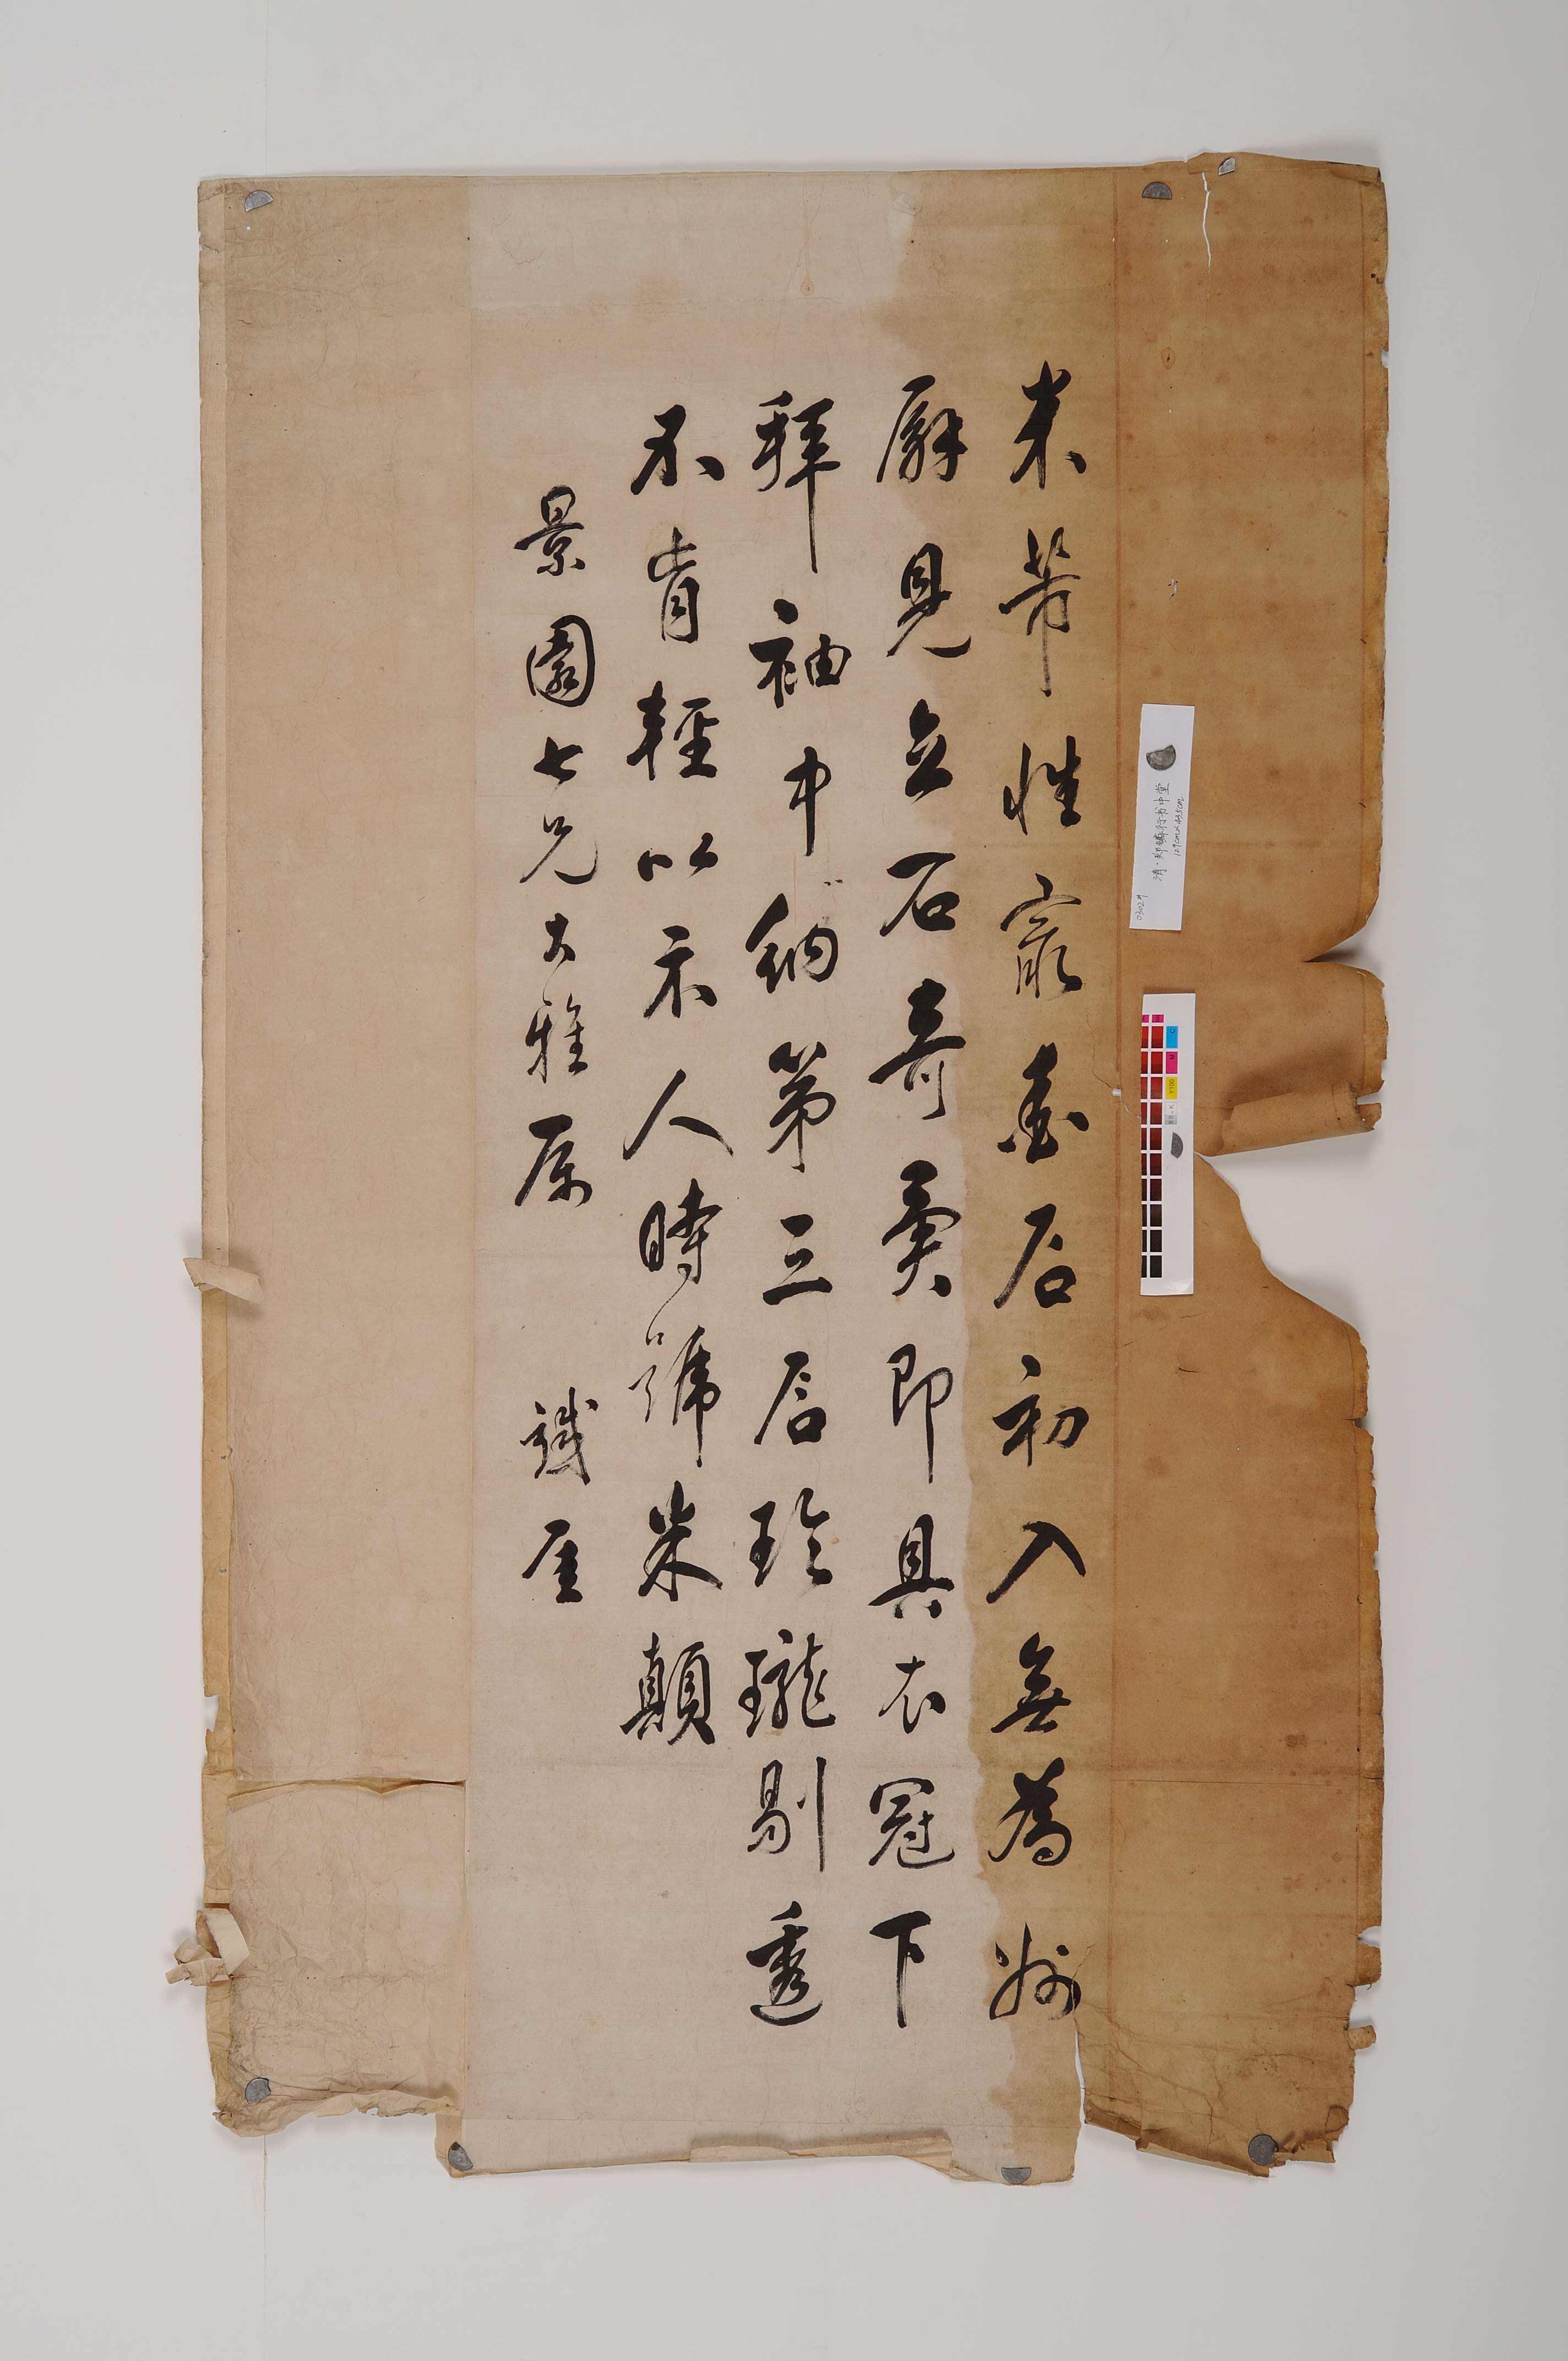 米芾性最愛石初入無為州
廨見立石奇奭即具衣冠下
拜袖中納第三石玲瓏剔透
不肯輕以示人時號米顛
景園七兄大雅屬 誠厓
03029
清·郑 行书中堂